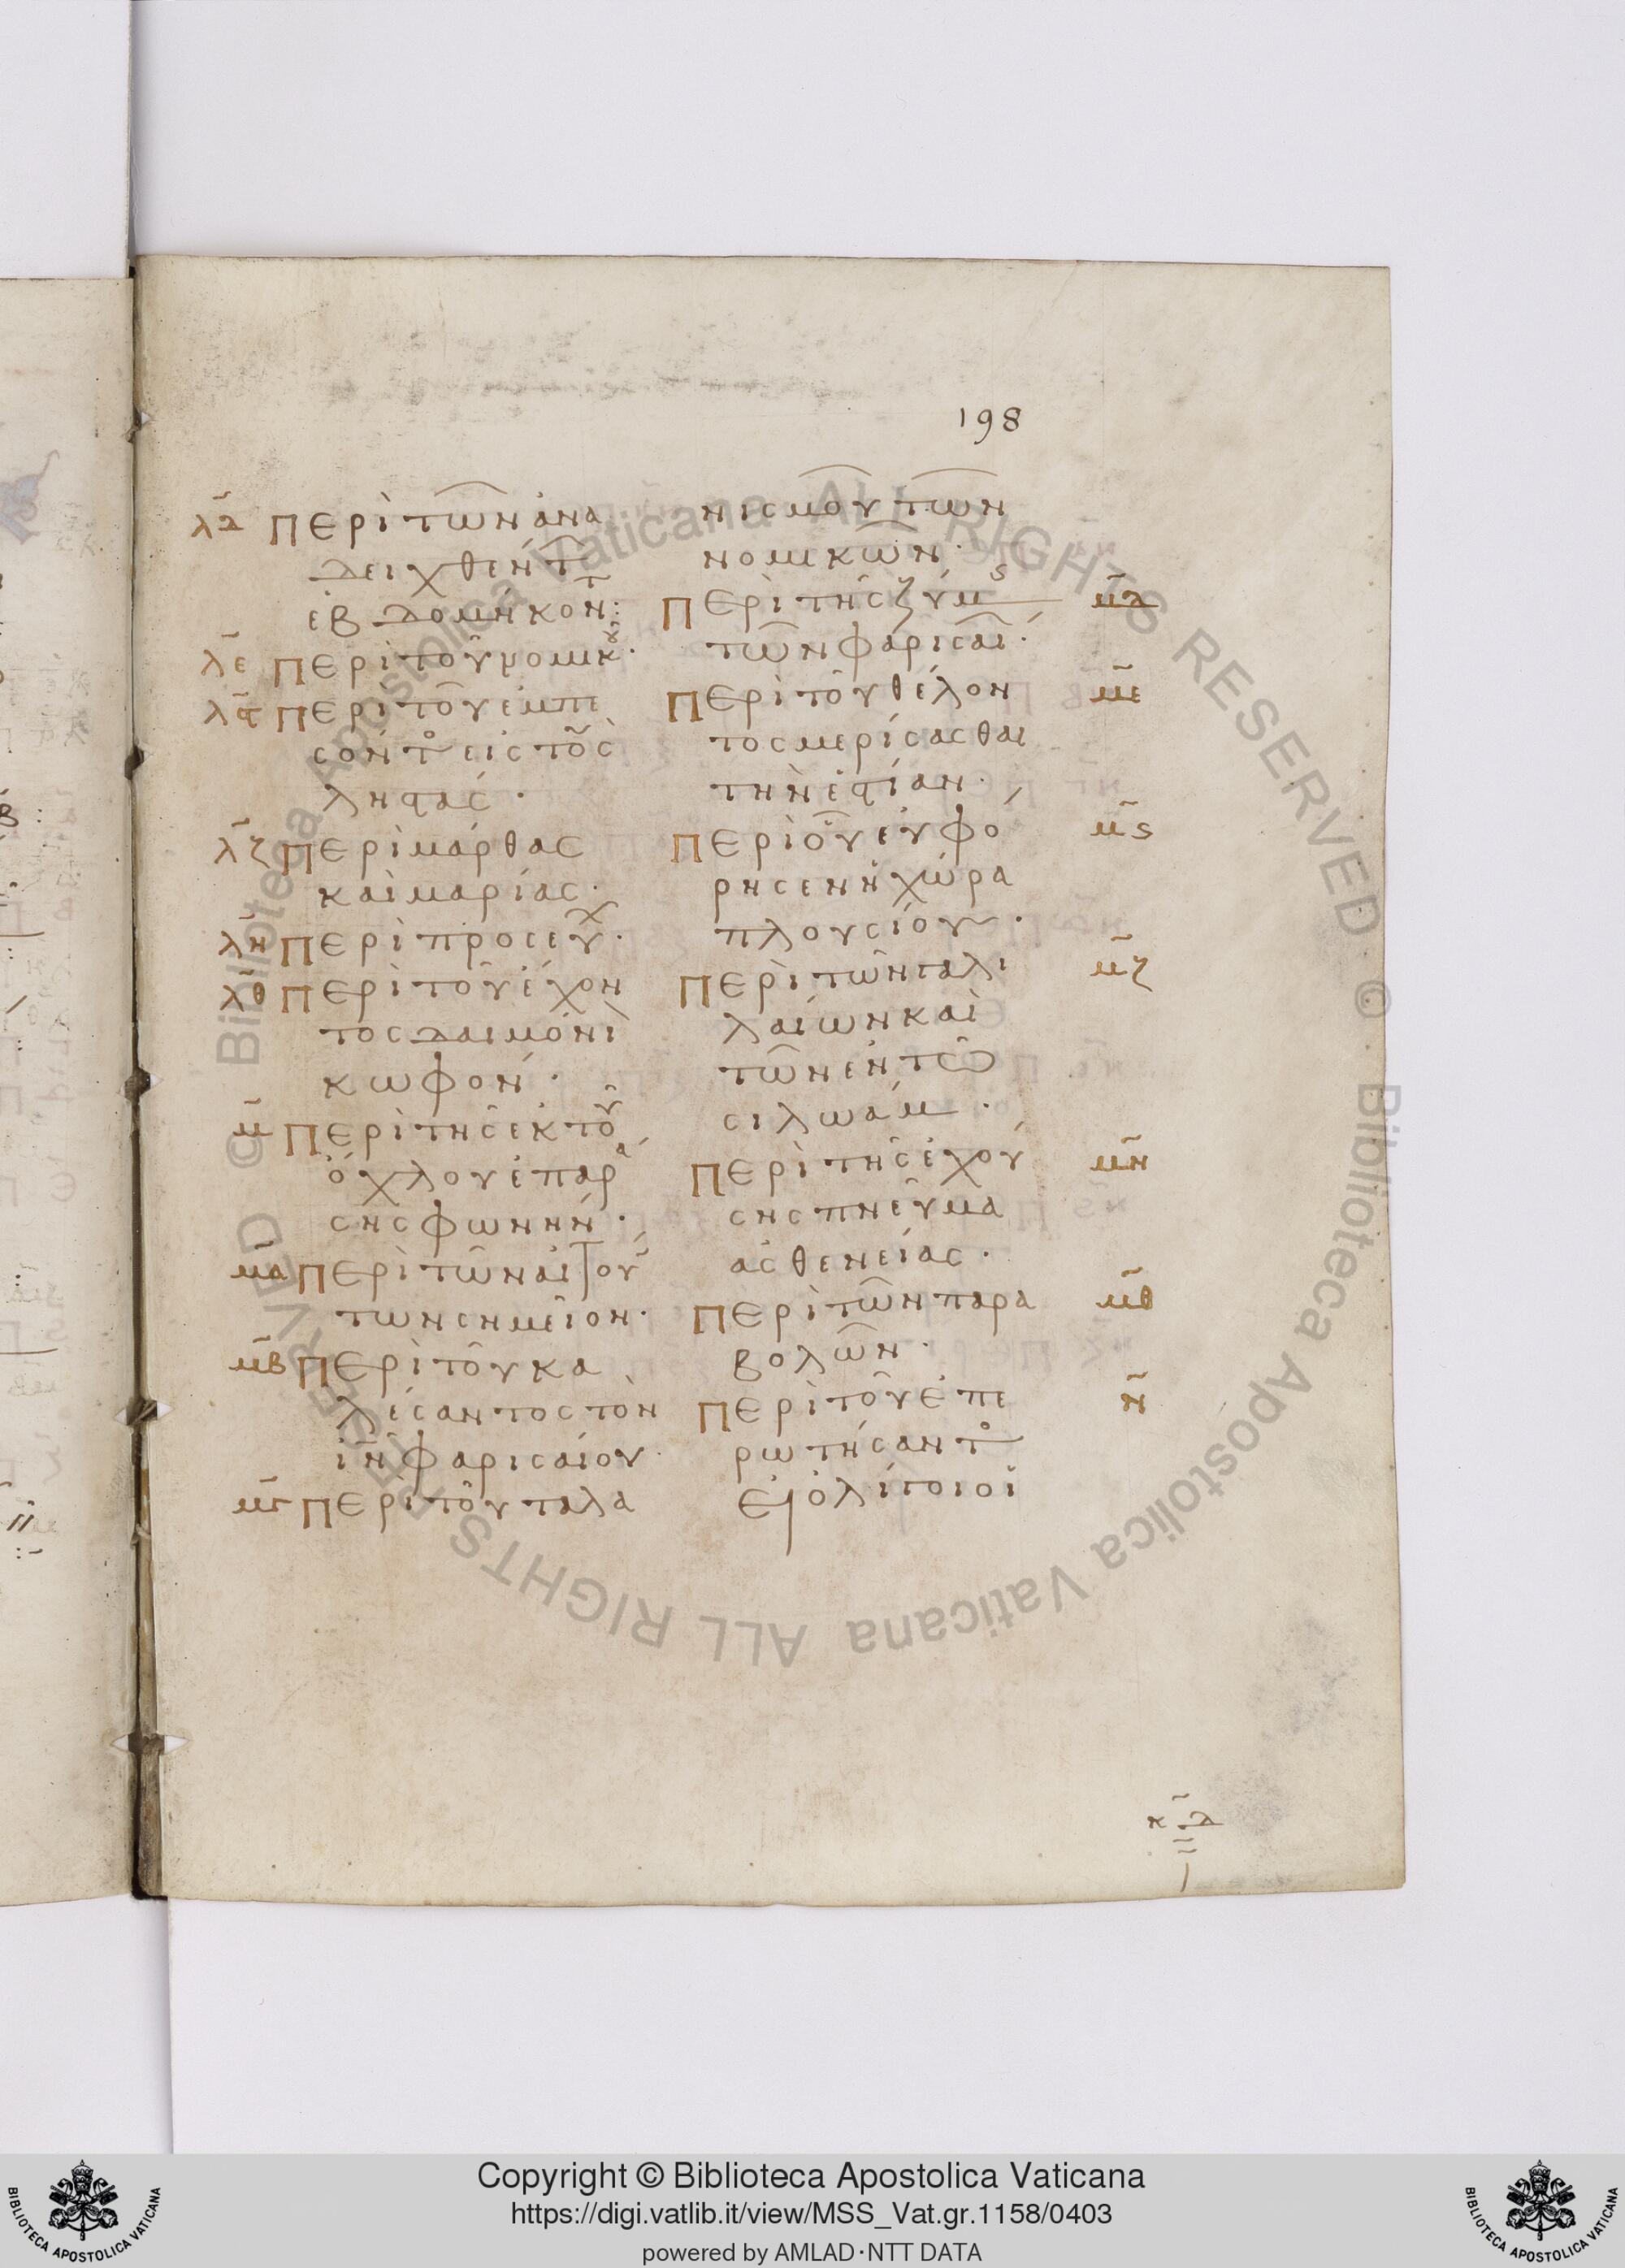 198
λδ Περὶ τῶν ἀνα
δειχθέντ
ἑβδομήκοντ:
λε Περὶ τοῦ νομικοῦ·
λϛ Περὶ τοῦ ἐμπε
σόντο εἰς τοὺς
ληστάς·
λζ Περὶ μάρθας
καὶ μαρίας·
λη Περὶ προσευχ·
λθ Περὶ τοῦ ἔχον
τος δαιμόνι
κωφόν·
μ Περὶ τῆς ἐκ τοῦ
ὄχλου ἐπαρά
σης φωνήν·
μα Περὶ τῶν αἰτού
των σημεῖον·
μβ Περὶ τοῦ κα
λέσαντος τὸν
ἰν φαρισαίου·
μγ Περὶ τοῦ ταλα
νισμοῦ τῶν
νομικῶν·
Περὶ τῆς ζύμς μδ
τῶν φαρισαί·
Περὶ τοῦ θέλον με
τος μερίσασθαι
τὴν ἐστίαν·
Περὶ οὗ εὐφό μϛ
ρησεν ἡ χώρα
πλουσίου·
Περὶ τῶν γαλι μζ
λαίων καὶ
τῶν ἐν τῶ
σιλωάμ·
Περὶ τῆς ἐχού μη
σης πνεῦμα
ἀσθενείας·
Περὶ τῶν παρα μθ
βολῶν·
Περὶ τοῦ ἐπε ν
ρωτήσαντο
εἰ ὀλίγοι οἱ
κδ
Copyright © Biblioteca Apostolica Vaticana
https://digi.vatlib.it/view/MSS_Vat.gr.1158/0403
powered by AMLAD·NTT DATA
BIBLIOTECA APOSTOLICA VATICANA
BIBLIOTECA APOSTOLICA VATICANA
© Biblioteca Apostolica Vaticana ALL RIGHTS RESERVED © Biblioteca Apostolica Vaticana ALL RIGHTS RESERVED